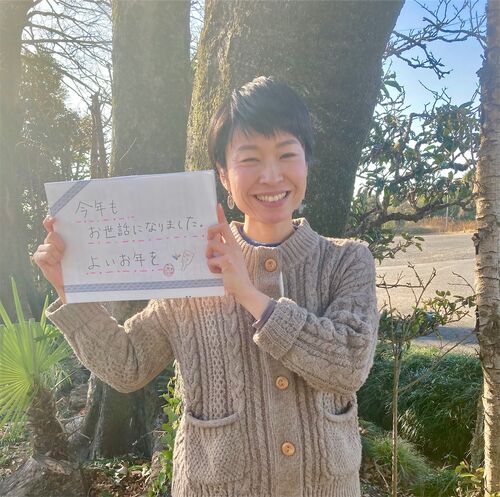 今年も
お世話になりました。
よいお年を